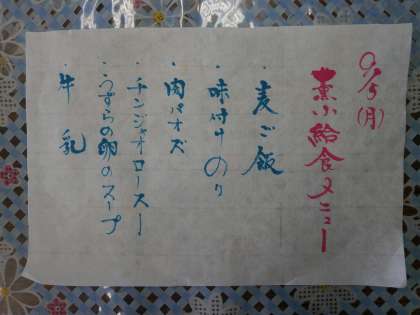 9/5(月)
薫小給食メニュー
・麦ご飯
・味付けのり
・肉パオズ
・チンジャオロースー
・うずらの卵のスープ
・牛乳